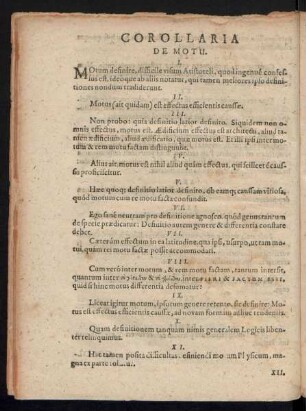 COROLLARIA
DE MOTU.
I.
MOtum definire, difficile visum Aristoteli, quod ingenuè confes-
sus est. ideoque ab aliis notatur, qui tamen meliores ipso defini-
tiones nondum tradiderunt.
II.
Motus (ait quidam) est effectus efficientis caussæ.
III.
Non probo: quia definitio latior definito. Siquidem non
omnis effectus, motus est. Ædificium effectus est architecti, aliud
tamen ædificium, aliud ædificatio, quæ motus est. Erit ipsi inter mo-
tum & rem motu factam distinguendum.
IV.
Alius ait. motus est nihil aliud quàm effectus. qui scilicet è caus-
sa proficiscitur.
V.
Hæc quoque definitio latior definito. ob eamque caussam vitiosa,
quòd motum cum re motu facta confundit.
VI.
Ego sanè neutram pro definitione agnosco. quòd genus tantùm
de specie prædicatur: Definitio autem genere & differentia constare
debet.
VII.
Cæterùm effectum in ea latitudine, qua ipsi, usurpo, ut tam mo-
tui, quàm rei motu factæ possit accommodari.
VIII.
Cum verò inter motum, & rem motu factam, tantum intersit,
quantum inter
quid si hinc motus differentia desumatur?
IX.
Liceat igitur motum, ipsorum genere retento, sic definire: Mo-
tus est effectus efficientis caussæ, ad novam formam adhuc tendentis.
X.
Quam definitionem tanquam nimis generalem Logicis liben-
ter relinquimus.
XI.
Hac tamen posita definienti motum Physicum, mag-
na ex parte
XII.